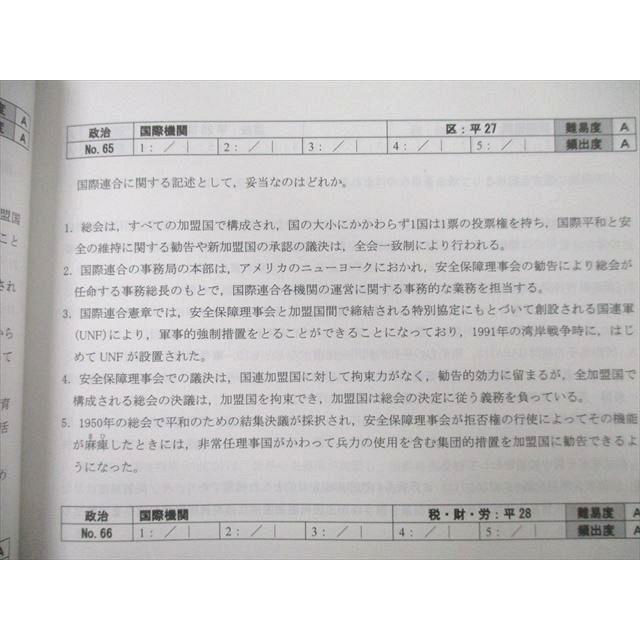 政治 国際機関 区：平27 難易度 A
No. 65 1： ／｜ 2： ／｜ 3： ／｜ 4： ／｜ 5： ／｜ 頻出度 A
国際連合に関する記述として，妥当なのはどれか。
1. 総会は，すべての加盟国で構成され，国の大小にかかわらず1国は1票の投票権を持ち，国際平和と安
全の維持に関する勧告や新加盟国の承認の議決は，全会一致制により行われる。
2. 国際連合の事務局の本部は，アメリカのニューヨークにおかれ，安全保障理事会の勧告により総会が
任命する事務総長のもとで，国際連合各機関の運営に関する事務的な業務を担当する。
3. 国際連合憲章では，安全保障理事会と加盟国間で締結される特別協定にもとづいて創設される国連軍
(UNF)により，軍事的強制措置をとることができることになっており，1991年の湾岸戦争時に，はじ
めてUNFが設置された。
4. 安全保障理事会での議決は，国連加盟国に対して拘束力がなく，勧告的効力に留まるが，全加盟国で
構成される総会の決議は，加盟国を拘束でき，加盟国は総会の決定に従う義務を負っている。
5. 1950年の総会で平和のための結集決議が採択され，安全保障理事会が拒否権の行使によってその機能
まひ
が麻痺したときには，非常任理事国がかわって兵力の使用を含む集団的措置を加盟国に勧告できるよ
うになった。
政治 国際機関 税・財・労：平28 難易度 A
No. 66 1： ／｜ 2： ／｜ 3： ／｜ 4： ／｜ 5： ／｜ 頻出度 A
度 A
度 A
加盟国
こと
され
から
て
育
活
め
A